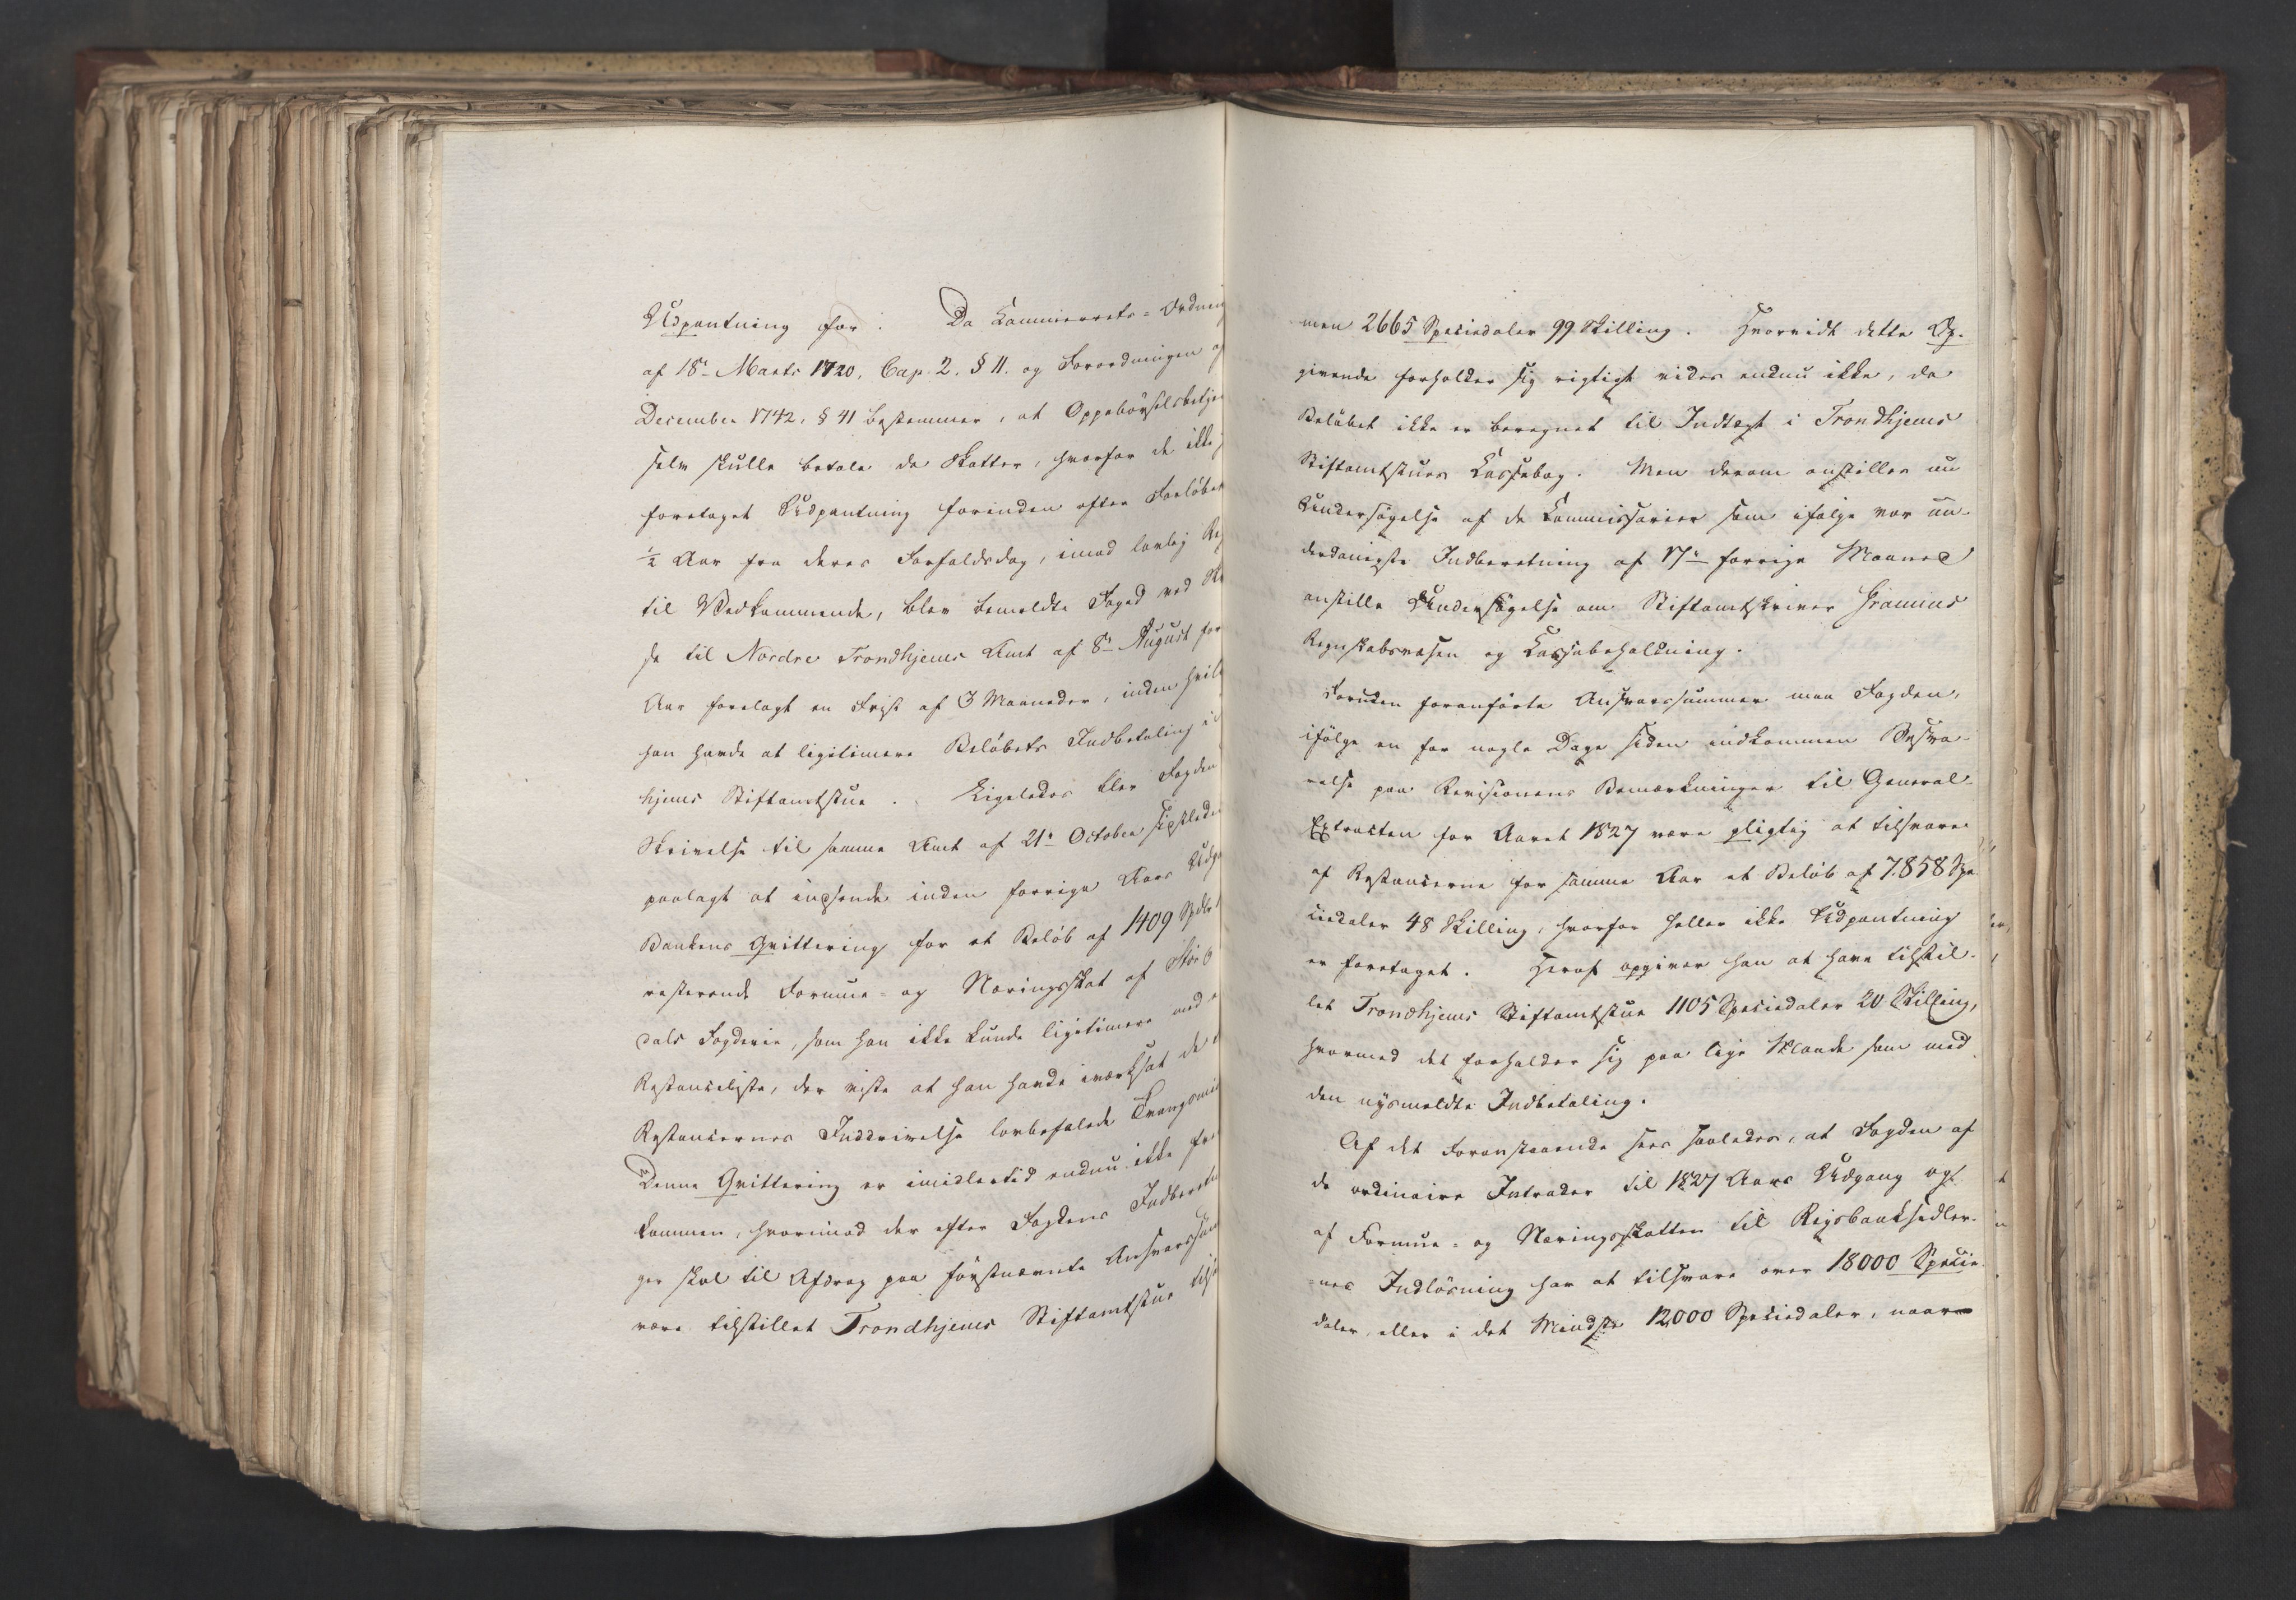 Udpantning for. Da Kammerrets-Ordning
af 18de Marts 1720, Cap. 2. § 11. og Forordningen af
December 1742, § 41 bestemmer, at Oppebørselsbetje
selv skulle betale de Skatter, hvorfor de ikke
foretaget Udpantning forinden efter Forløbet
½ Aar fra deres Forfaldsdag, imod lovlig Reg
til Vedkommende, blev bemeldte Foged ved Skr
se til Nordre Trondhjems Amt af 8de August for
Aar forelagt en Frist af 3 Maaneder, inden hvilk
han havde at legitimere Beløbets Indbetaling i
hjems Stiftamtstue. Ligeledes blev Fogden
Skrivelse til samme Amt af 21de October sidstleden
paalagt at indsende inden forrige Aars Udga
Bankens Qvittering for et Beløb af 1409 Spdlr
resterende Formue- og Næringsskat af Stør
dals Fogderie, som han ikke kunde legitimere med
Restanceliste, der viste at han havde iværksat de
Restancernes Inddrivelse lovbefalede Tvangsmid
Denne Qvittering er imidlertid endnu ikke frem
kommen, hvorimod der efter Fogdens Indberetn
ger skal til Afdrag paa førstnævnte Ansvarssum
være tilstillet Trondhjems Stiftamtstue tils
men 2665 Speciedaler 99 Skilling. Hvorvidt dette Op-
givende forholder sig rigtigt vides endnu ikke, da
Beløbet ikke er beregnet til Indtægt i Trondhjems
Stiftamtstues Kassebog. Men derom anstilles nu
Undersøgelse af de Kommissarier som ifølge vor un-
derdanigste Indberetning af 17de forrige Maaned
anstille Undersøgelse om Stiftamtskriver Hramins
Regnskabsvæsen og Kassebeholdning.
Foruden foranførte Ansvarssummer maa Fogden,
ifølge en for nogle Dage siden indkommen Besva-
relse paa Revisionens Bemærkninger til General-
Extracten for Aaret 1827 være pligtig at tilsvare
af Restancerne for samme Aar et Beløb af 7.858 Spe-
ciedaler 48 Skilling, hvorfor heller ikke Udpantning
er foretaget. Heraf opgiver han at have tilstil-
let Trondhjems Stiftamtstue 1105 Speciedaler 20 Skilling,
hvormed det forholder sig paa lige Maade som med
den nysmeldte Indbetaling.
Af det Foranstaaende sees saaledes, at Fogden af
de ordinaire Intrader til 1827 Aars Udgang og
af Formue- og Næringsskatten til Rigsbanksedler-
nes Indløsning har at tilsvare over 18000 Specie-
daler, eller i det Mindste 12,000 Speciedaler, naar